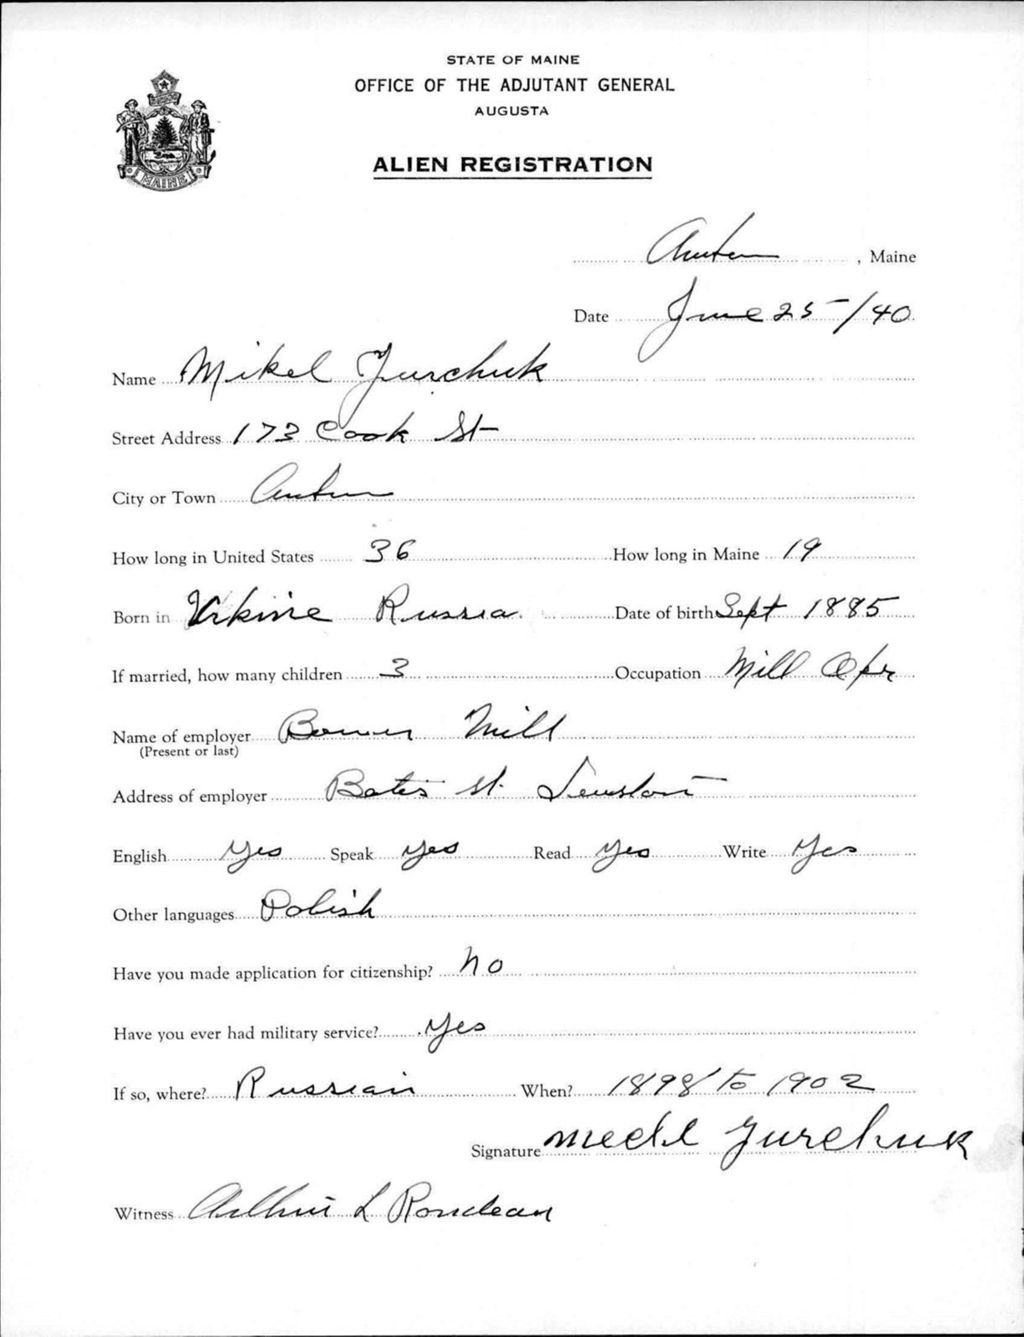 STATE OF MAINE
OFFICE OF THE ADJUTANT GENERAL
AUGUSTA
MAINE
ALIEN REGISTRATION
, Maine
Date June 25-/40
Name Mikel Jurchuk
Street Address 173 Cook St
City or Town
How long in United States 36 How long in Maine 19
Born in Urkine Russia. Date of birth Sept 1885
If married, how many children 3 Occupation Mill Opr
Name of employer Mill
(Present or last)
Address of employer Bates St. Lewston
English Yes Speak yes Read yes Write Yes
Other languages Polish
Have you made application for citizenship? no
Have you ever had military service? Yes
If so, where? Russian When? 1898 to 1902
Signature Jurchuk
Witness L Rondeau